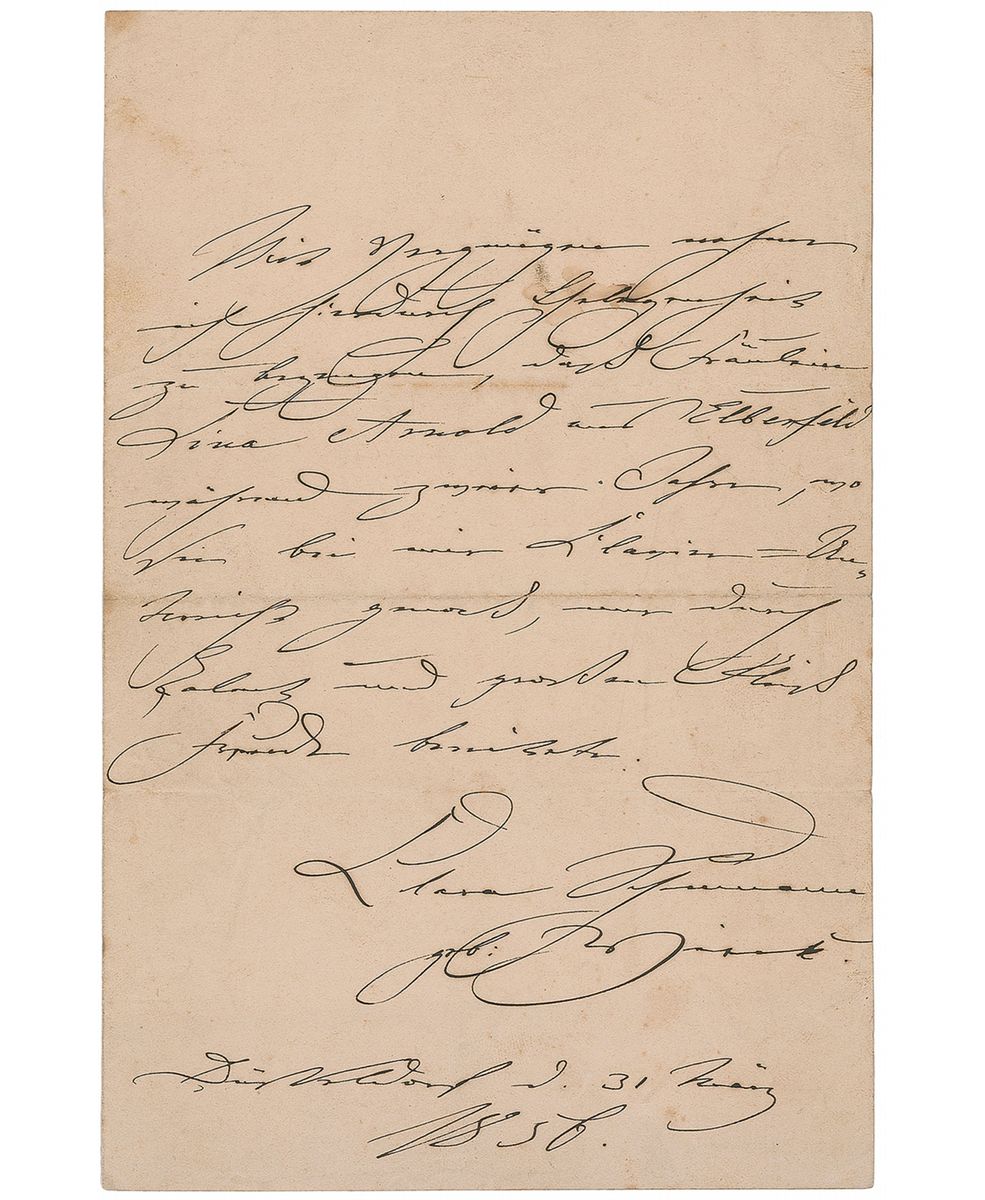 Mit Vergnügen nehme
ich hierdurch Gelegenheit
zu bezeugen, daß Fräulein
Lina Arnold aus Elberfeld
während zweier Jahre, wo
sie bei mir Clavier=Un=
terricht genoß, mir durch
Talent und großen Fleiß
Freude bereitete.
Clara Schumann
geb: Wieck.
Düsseldorf d. 31 März
1856.